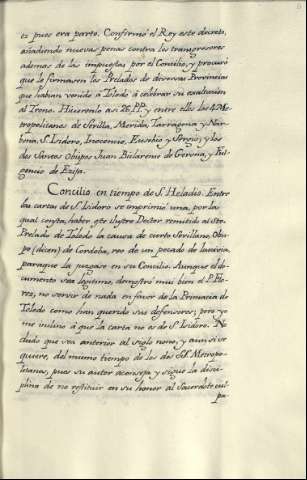 ez pues era parto. Confirmó el Rey este decreto,
añadiendo nuevas penas contra los transgresores
ademas de las impuestas por el Concilio, y procuró
que le firmasen los Prelados de diversas Provincias
que habian venido a Toledo á celebrar su exaltacion
al Trono. Hicieronlo asi 26 PP. y entre ellos los 4 Me-
tropolitanos de Sevilla, Merida, Tarragona y Nar-
bona, S. Isidoro, Inocencio, Eusebio y Sergio, y los
dos Santos Obispos Juan Biclarense de Gerona, y Ful-
gencio de Ecija.
Concilio en tiempo de S. Heladio. Entre
las cartas de S. Isidoro se imprimió una, por la
qual consta, haber este ilustre Doctor remitido al Sto.
Prelado de Toledo la causa de cierto Sevillano, Obis-
po (dicen) de Cordoba, reo de un pecado de luxuria,
paraque la juzgase en su Concilio. Aunque el do-
cumento sea legitimo, demostró mui bien el P. Flo-
rez, no servir de nada en favor de la Primacia de
Toledo como han querido sus defensores; pero yo
me inclino á que la carta no es de S. Isidoro. No
dudo que sea anterior al siglo nono, y aun si se
quiere, del mismo tiempo de los dos SS. Metropo-
litanos, pues su autor aconseja y sigue la disci-
plina de no restituir en su honor al Sacerdote cul-
pa-